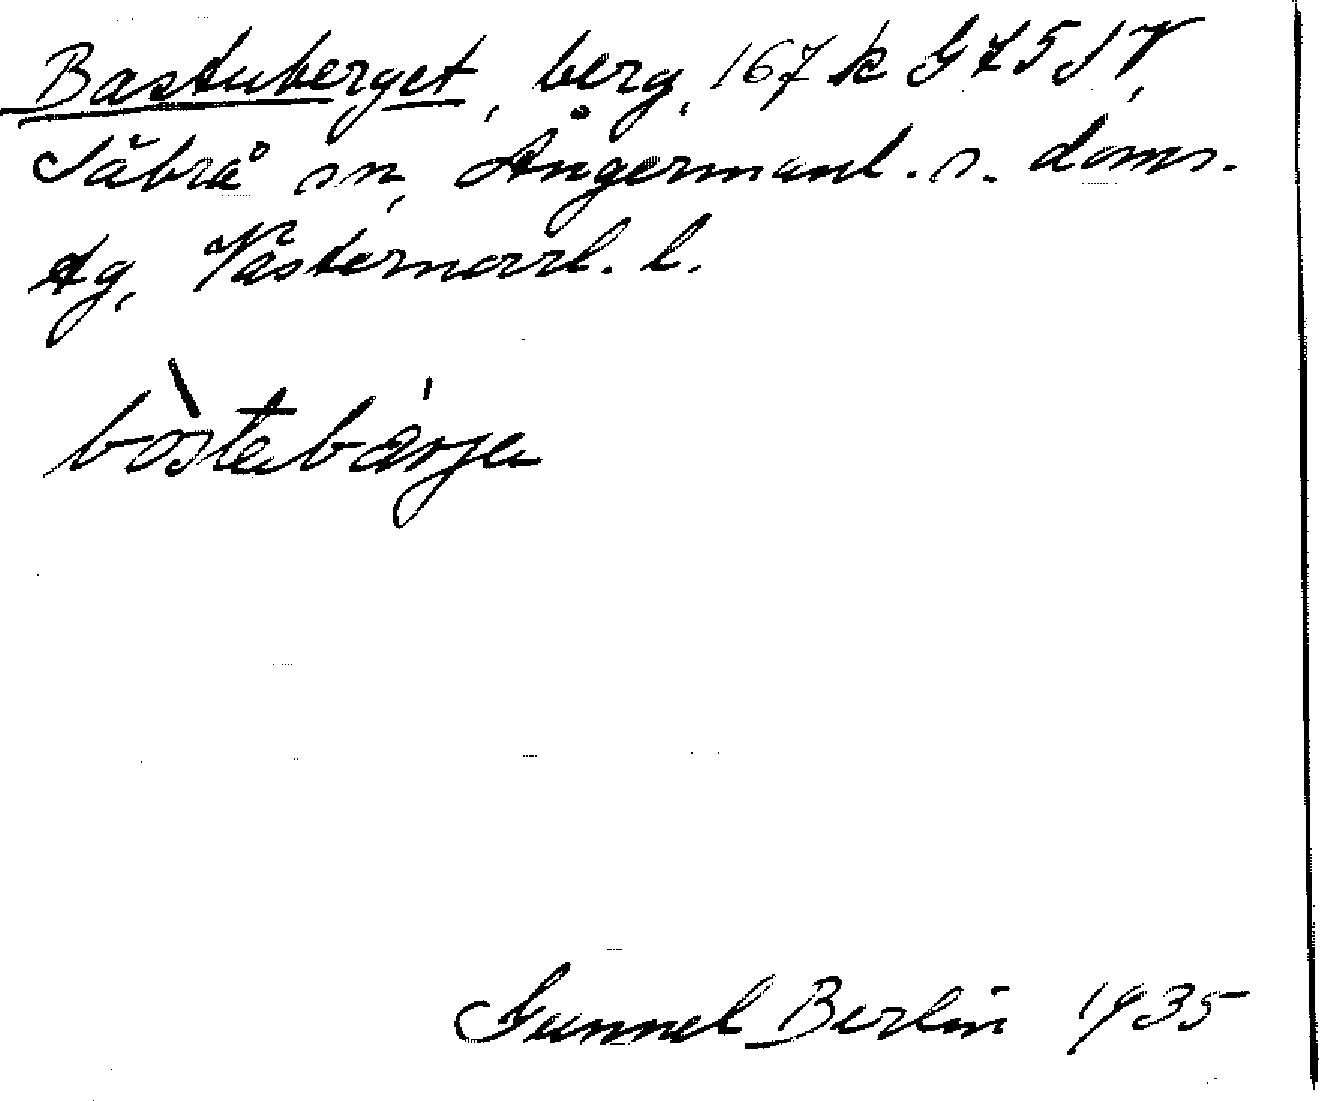 Bastuberget, berg, 167 k G 75 SV,
Säbrå sn, Ångermanl. s. doms.
tg, Västernorrl. l.
bòstabárje
Gunnel Berlin 1935